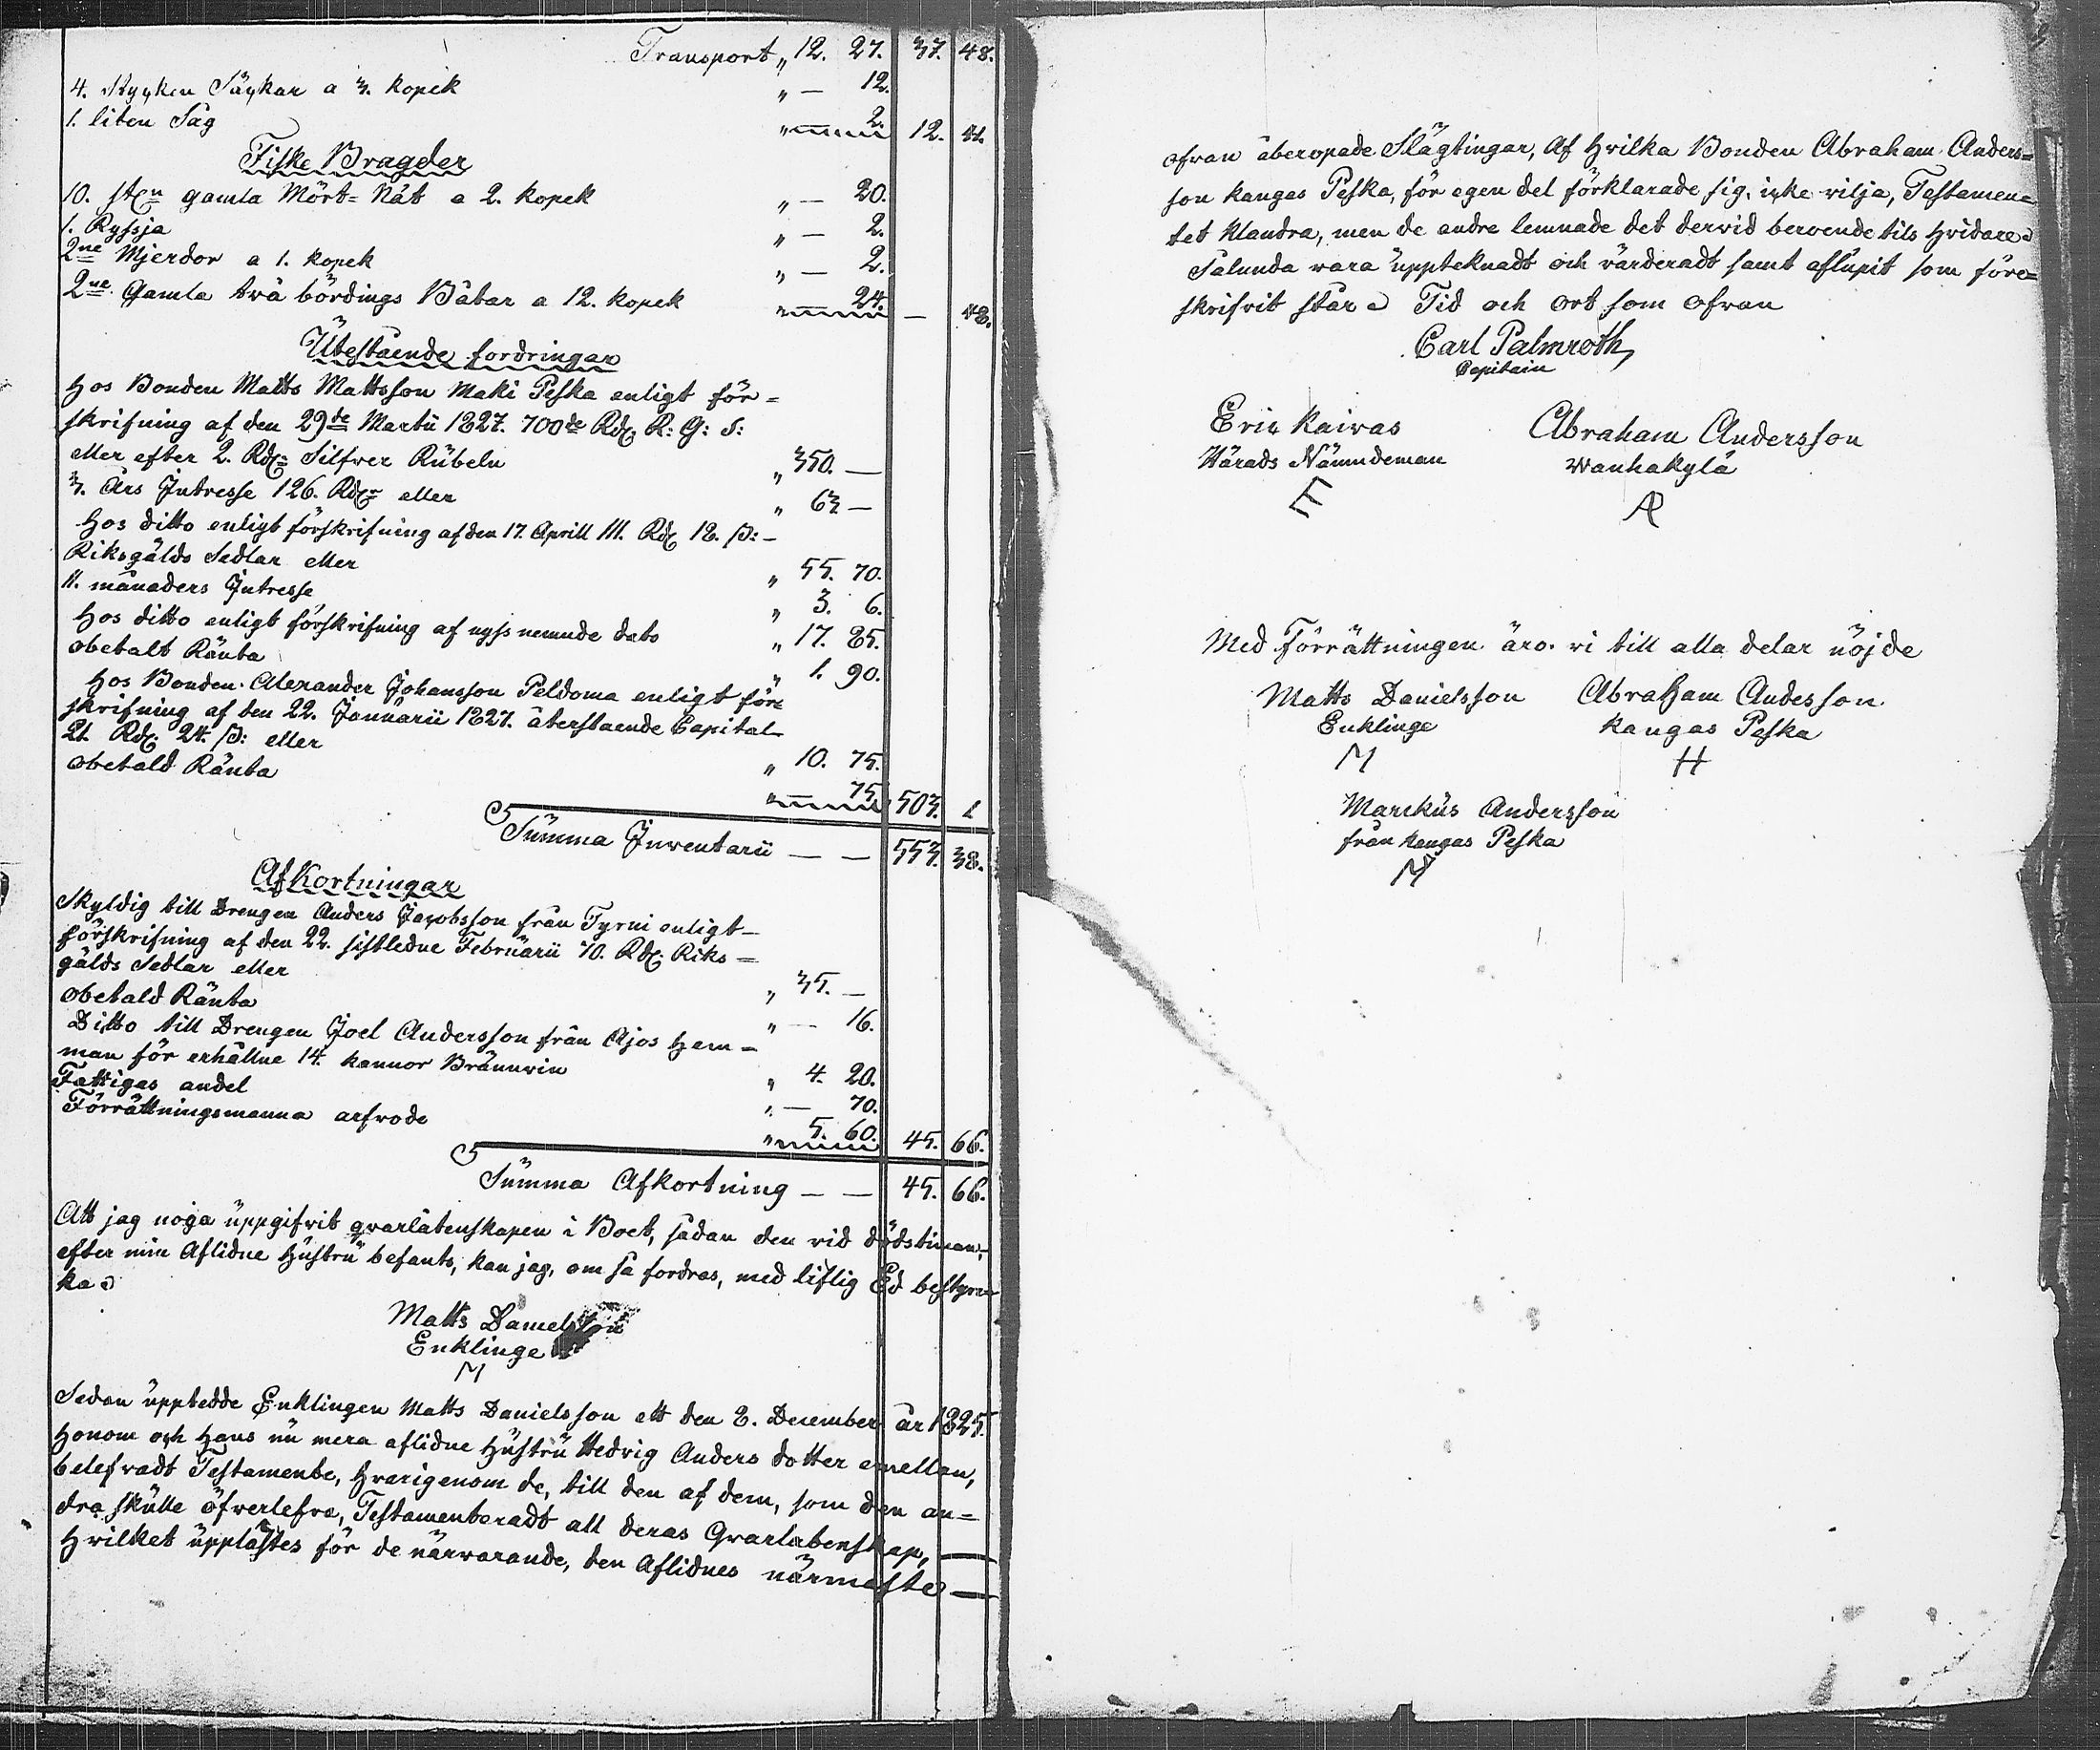 Transport „ 12. 27. 37. 48.
4. Stycken Säckar a 3. kopek „ — 12.
1. liten Såg „ — 2. 12. 41.
Fiske Bragder
10. st:n gamla Mört=Nät a 2. kopek „ — 20.
1. Ryssja „ — 2.
2ne Mjerdor a 1. kopek „ — 2.
2ne Gamla två bördings Båtar a 12. kopek „ — 24. — 48.
Utestående fordringar
Hos Bonden Matts Mattsson Maki Peska enligt för=
skrifning af den 29de Martii 1827. 700de Rd: R: G: S:
eller efter 2. Rd:r Silfver Rubeln „ 350. —
3. Års Intresse 126. Rd:r eller „ 63 —
Hos ditto enligt förskrifning af den 17. Aprill 111. Rd: 12. s: –
Riksgälds Sedlar eller „ 55. 70.
11. månaders Intresse „ 3. 6.
Hos ditto enligt förskrifning af nyss nemnde dato „ 17. 85.
obetalt Ränta „ 1. 90.
Hos Bonden Alexander Johansson Peldoma enligt för=
skrifning af den 22. Januarii 1827. återstaende Capital
21. Rd: 24. s: eller „ 10. 75.
obetald Ränta „ — 75. 503. 1
Summa Inventarii — — 553. 38.
Afkortningar
Skyldig till Drengen Anders Jacobsson från Tyrni enligt–
förskrifning af den 22. sistledne Februarii 70. Rd: Riks=
gälds Sedlar eller „ 35. —
obetald Ränta „ — 16.
Ditto till Drengen Joel Andersson från Ajos Hem=
man för erhållne 14. kannor Brännvin „ 4. 20.
Fattigas andel „ — 70.
Förrättningsmanna arfvode „ 5. 60. 45. 66.
Summa Afkortning — — 45. 66.
Att jag noga uppgifvit qvarlåtenskapen i Boet, sådan den vid dödstiman,
efter min Aflidne Hustru befants, kan jag, om så fordras, med liflig Ed bestyr=
ka
Matts Danielsson
Enklinge
M
Sedan upptedde Enklingen Matts Danielsson ett den 2. December år 1825.
Honom och Hans nu mera aflidne Hustru Hedvig Anders dotter emellan,
belefvadt Testamente, Hvarigenom de, till den af dem, som den an=
dra skulle öfverlefva, Testamenteradt all deras Qvarlatenskap,
Hvilket upplästes för de närvarande, den Aflidnes närmaste
ofvan åberopade Slägtingar, Af Hvilka Bonden Abraham Anders=
son kangas Peska, för egen del förklarade sig, icke vilja, Testamen=
tet klandra, men de andre lemnade det dervid beroende tils Hvidare
Salunda vara uppteknadt och värderadt samt aflupit som före=
skrifvit står Tid och ort som ofvan
Carl Palmroth,
Capitain
Eric Kaivas
Härads Nämndeman
E
Abraham Andersson
Wanhakylä
A
Med Förrättningen äro vi till alla delar nöjde
Matts Danielsson
Enklinge
M
Abraham Andesson
Kangas Peska
H
Marckus Andersson
från kangas Peska
M